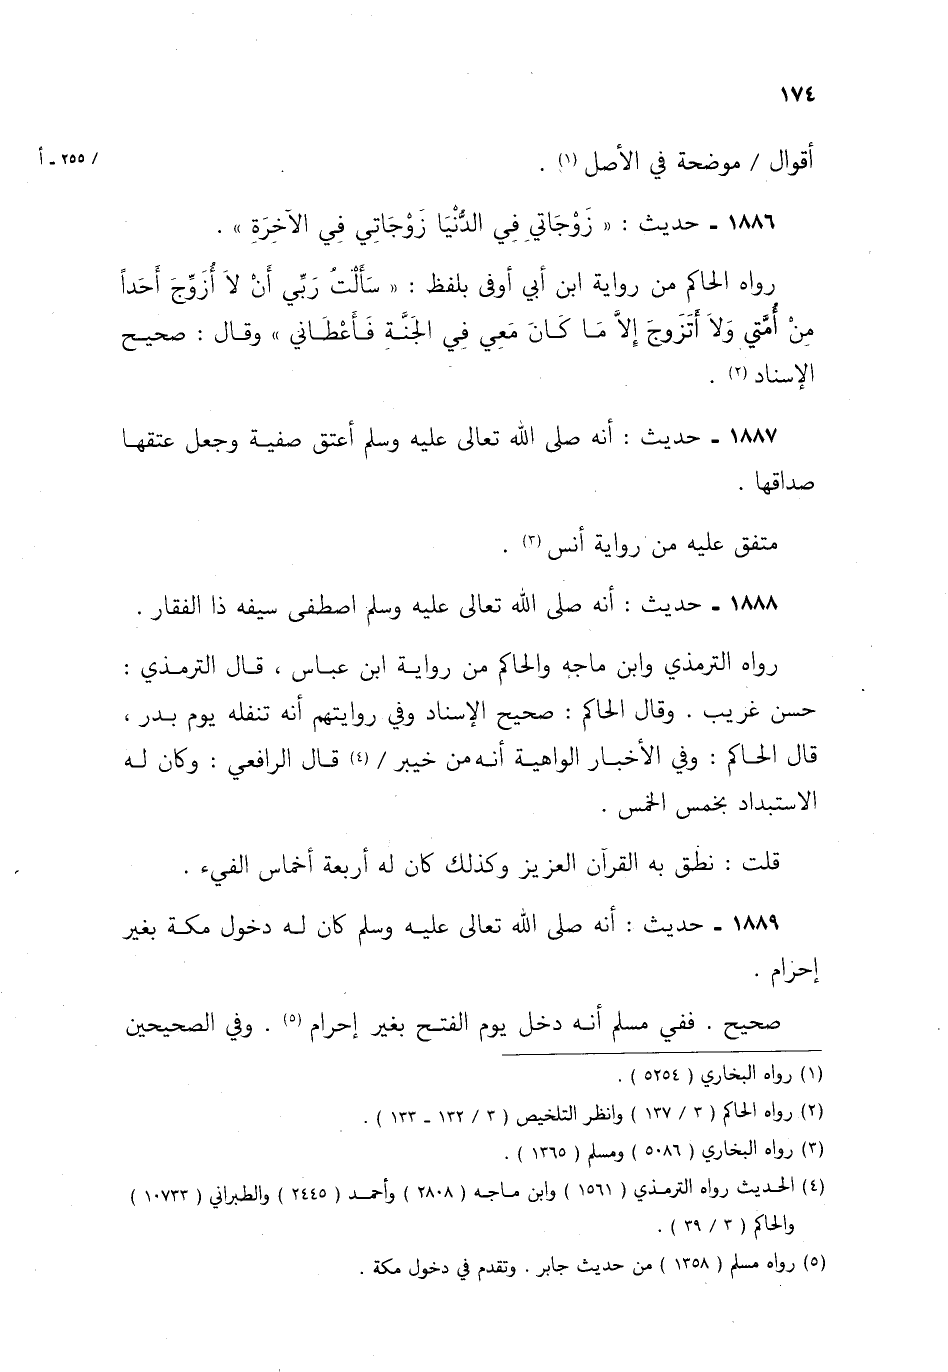 ١٧٤
أقوال / موضحة في الأصل (١) .
/ ٢٥٥ ـ أ
١٨٨٦ ـ حديث : « زَوْجَاتي فِي الدُّنْيَا زَوْجَاتِي فِي الآخِرَةِ » .
رواه الحاكم من رواية ابن أبي أوفى بلفظ : « سَأَلْتُ رَبِّي أَنْ لاَ أُزَوِّجَ أَحَداً
مِنْ أُمَّتي وَلاَ أَتَزَوجَ إِلاَّ مَا كَانَ مَعِي فِي الجَنَّةِ فَأَعْطَاني » وقال : صحيح
الإسناد (٢) .
١٨٨٧ ـ حديث : أنه صلى الله تعالى عليه وسلم أعتق صفية وجعل عتقها
صداقها .
متفق عليه من رواية أنس (٣) .
١٨٨٨ ـ حديث : أنه صلى الله تعالى عليه وسلم اصطفى سيفه ذا الفقار .
رواه الترمذي وابن ماجه والحاكم من رواية ابن عباس ، قال الترمذي :
حسن غريب . وقال الحاكم : صحيح الإسناد وفي روايتهم أنه تنفله يوم بدر ،
قال الحاكم : وفي الأخبار الواهية أنه من خيبر / (٤) قال الرافعي : وكان له
الاستبداد بخمس الخمس .
قلت : نطق به القرآن العزيز وكذلك كان له أربعة أخماس الفيء .
١٨٨٩ ـ حديث : أنه صلى الله تعالى عليه وسلم كان له دخول مكة بغير
إحرام .
صحيح . ففي مسلم أنه دخل يوم الفتح بغير إحرام (٥) . وفي الصحيحين
(١) رواه البخاري ( ٥٢٥٤ ) .
(٢) رواه الحاكم ( ٣ / ١٣٧ ) وانظر التلخيص ( ٣ / ١٣٢ ـ ١٣٣ ) .
(٣) رواه البخاري ( ٥٠٨٦ ) ومسلم ( ١٣٦٥ ) .
(٤) الحديث رواه الترمذي ( ١٥٦١ ) وابن ماجه ( ٢٨٠٨ ) وأحمد ( ٢٤٤٥ ) والطبراني ( ١٠٧٣٣ )
والحاكم ( ٣ / ٣٩ ) .
(٥) رواه مسلم ( ١٣٥٨ ) من حديث جابر . وتقدم في دخول مكة .